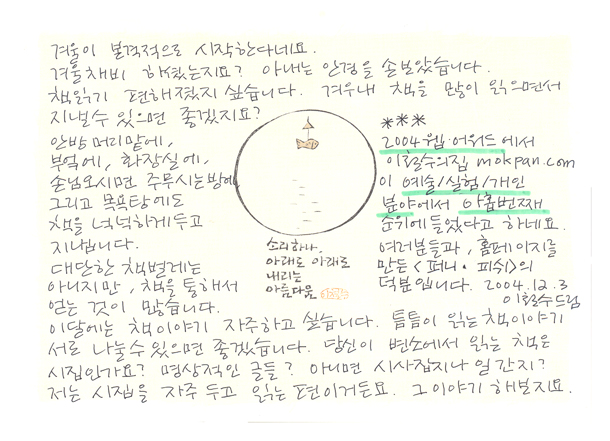 겨울이 본격적으로 시작한다네요.
겨울채비 하셨는지요? 아내는 안경을 손보았습니다.
책읽기 편해졌지 싶습니다. 겨우내 책을 많이 읽으면서
지낼수 있으면 좋겠지요?
안방 머리맡에,
부엌에, 화장실에,
손님오시면 주무시는방에,
그리고 목욕탕에도
책을 넉넉하게 두고
지냅니다.
대단한 책벌레는
아니지만, 책을 통해서
얻는 것이 많습니다.
소리하나.
아래로 아래로
내리는
아름다움
***
2004 웹·어워드에서
이철수의집 mokpan.com
이 예술/실험/개인
분야에서 아홉번째
순위에 들었다고 하네요.
여러분들과, 홈페이지를
만든 <퍼니·피쉬>의
덕분입니다. 2004.12.3
이철수드림
이달에는 책이야기 자주하고 싶습니다. 틈틈이 읽는 책이야기
서로 나눌수 있으면 좋겠습니다. 당신이 변소에서 읽는 책은
시집인가요? 명상적인 글들? 아니면 시사잡지나 일간지?
저는 시집을 자주 두고 읽는 편이거든요. 그 이야기 해보지요.